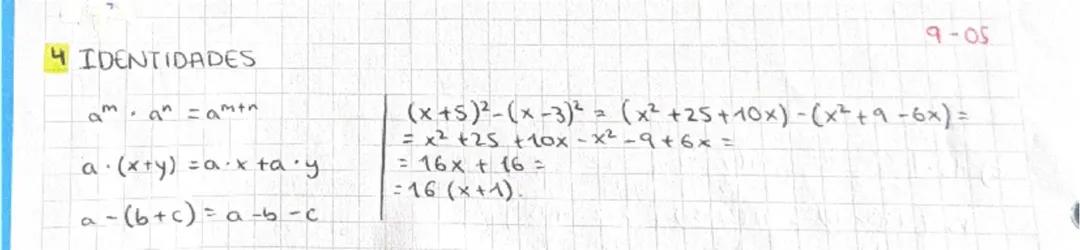 9-05
4 IDENTIDADES
a^m · a^n = a^{m+n}
a · (x+y) = a · x + a · y
a - (b+c) = a - b - c
(x+5)² - (x-3)² = (x² + 25 + 10x) - (x² + 9 - 6x) =
= x² + 25 + 10x - x² - 9 + 6x =
= 16x + 16 =
= 16 (x+1).